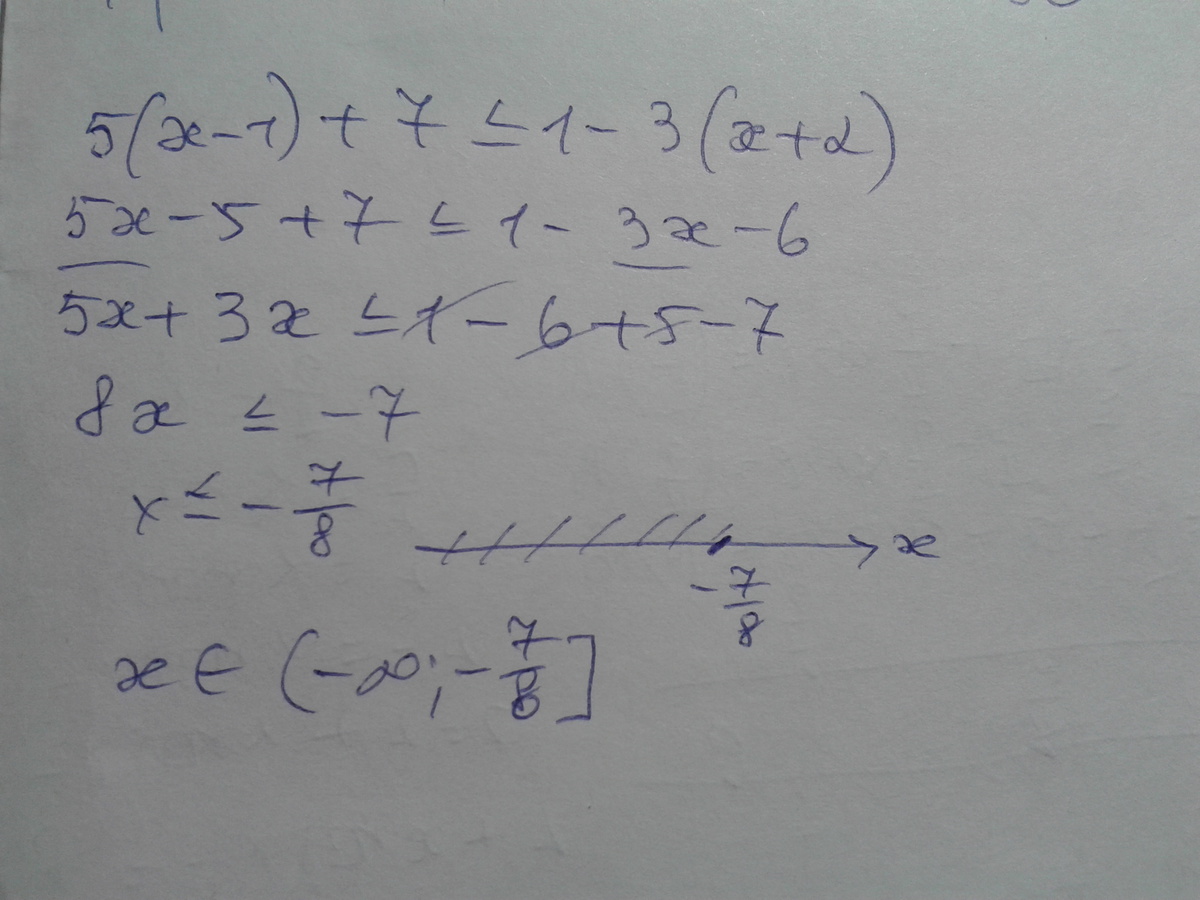 5(x-1)+7≤1-3(x+2)
5x-5+7≤1-3x-6
5x+3x≤1-6+5-7
8x≤-7
x≤-7/8
x
-7/8
x∈(-∞;-7/8]